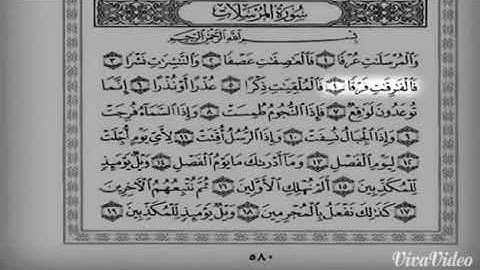 سُورَةُ المُرْسَلَات
بِسْمِ اللَّهِ الرَّحْمَٰنِ الرَّحِيمِ
وَالْمُرْسَلَٰتِ عُرْفًا ١ فَالْعَٰصِفَٰتِ عَصْفًا ٢ وَالنَّٰشِرَٰتِ نَشْرًا ٣
فَالْفَٰرِقَٰتِ فَرْقًا ٤ فَالْمُلْقِيَٰتِ ذِكْرًا ٥ عُذْرًا أَوْ نُذْرًا ٦ إِنَّمَا
تُوعَدُونَ لَوَٰقِعٌ ٧ فَإِذَا النُّجُومُ طُمِسَتْ ٨ وَإِذَا السَّمَآءُ فُرِجَتْ
٩ وَإِذَا الْجِبَالُ نُسِفَتْ ١٠ وَإِذَا الرُّسُلُ أُقِّتَتْ ١١ لِأَيِّ يَوْمٍ أُجِّلَتْ
١٢ لِيَوْمِ الْفَصْلِ ١٣ وَمَآ أَدْرَىٰكَ مَا يَوْمُ الْفَصْلِ ١٤ وَيْلٌ يَوْمَئِذٍ
لِّلْمُكَذِّبِينَ ١٥ أَلَمْ نُهْلِكِ الْأَوَّلِينَ ١٦ ثُمَّ نُتْبِعُهُمُ الْءَاخِرِينَ
١٧ كَذَٰلِكَ نَفْعَلُ بِالْمُجْرِمِينَ ١٨ وَيْلٌ يَوْمَئِذٍ لِّلْمُكَذِّبِينَ ١٩
٥٨٠
VivaVideo